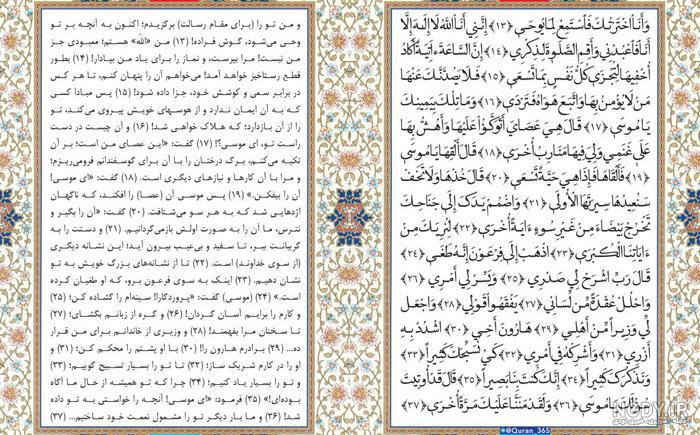 وَأَنَا اخْتَرْتُكَ فَاسْتَمِعْ لِمَا يُوحَى ﴿۱۳﴾ إِنَّنِي أَنَا اللَّهُ لَا إِلَهَ إِلَّا
أَنَا فَاعْبُدْنِي وَأَقِمِ الصَّلَاةَ لِذِكْرِي ﴿۱۴﴾ إِنَّ السَّاعَةَ آتِيَةٌ أَكَادُ
أُخْفِيهَا لِتُجْزَى كُلُّ نَفْسٍ بِمَا تَسْعَى ﴿۱۵﴾ فَلَا يَصُدَّنَّكَ عَنْهَا
مَنْ لَا يُؤْمِنُ بِهَا وَاتَّبَعَ هَوَاهُ فَتَرْدَى ﴿۱۶﴾ وَمَا تِلْكَ بِيَمِينِكَ
يَا مُوسَى ﴿۱۷﴾ قَالَ هِيَ عَصَايَ أَتَوَكَّأُ عَلَيْهَا وَأَهُشُّ بِهَا
عَلَى غَنَمِي وَلِيَ فِيهَا مَآرِبُ أُخْرَى ﴿۱۸﴾ قَالَ أَلْقِهَا يَا مُوسَى
﴿۱۹﴾ فَأَلْقَاهَا فَإِذَا هِيَ حَيَّةٌ تَسْعَى ﴿۲۰﴾ قَالَ خُذْهَا وَلَا تَخَفْ
سَنُعِيدُهَا سِيرَتَهَا الْأُولَى ﴿۲۱﴾ وَاضْمُمْ يَدَكَ إِلَى جَنَاحِكَ
تَخْرُجْ بَيْضَاءَ مِنْ غَيْرِ سُوءٍ آيَةً أُخْرَى ﴿۲۲﴾ لِنُرِيَكَ مِنْ
آيَاتِنَا الْكُبْرَى ﴿۲۳﴾ اذْهَبْ إِلَى فِرْعَوْنَ إِنَّهُ طَغَى ﴿۲۴﴾
قَالَ رَبِّ اشْرَحْ لِي صَدْرِي ﴿۲۵﴾ وَيَسِّرْ لِي أَمْرِي ﴿۲۶﴾
وَاحْلُلْ عُقْدَةً مِنْ لِسَانِي ﴿۲۷﴾ يَفْقَهُوا قَوْلِي ﴿۲۸﴾ وَاجْعَلْ
لِي وَزِيرًا مِنْ أَهْلِي ﴿۲۹﴾ هَارُونَ أَخِي ﴿۳۰﴾ اشْدُدْ بِهِ
أَزْرِي ﴿۳۱﴾ وَأَشْرِكْهُ فِي أَمْرِي ﴿۳۲﴾ كَيْ نُسَبِّحَكَ كَثِيرًا ﴿۳۳﴾
وَنَذْكُرَكَ كَثِيرًا ﴿۳۴﴾ إِنَّكَ كُنْتَ بِنَا بَصِيرًا ﴿۳۵﴾ قَالَ قَدْ أُوتِيتَ
سُؤْلَكَ يَا مُوسَى ﴿۳۶﴾ وَلَقَدْ مَنَنَّا عَلَيْكَ مَرَّةً أُخْرَى ﴿۳۷﴾
@Quran_365
NODY.IR
و من تو را (برای مقام رسالت) برگزیدم؛ اکنون به آنچه بر تو
وحی می‌شود، گوش فراده! (۱۳) من «الله» هستم؛ معبودی جز
من نیست! مرا بپرست، و نماز را برای یاد من بپادار! (۱۴) بطور
قطع رستاخیز خواهد آمد! می‌خواهم آن را پنهان کنم، تا هر کس
در برابر سعی و کوشش خود، جزا داده شود! (۱۵) پس مبادا کسی
که به آن ایمان ندارد و از هوسهای خویش پیروی می‌کند، تو
را از آن بازدارد؛ که هلاک خواهی شد! (۱۶) و آن چیست در دست
راست تو، ای موسی؟! (۱۷) گفت: «این عصای من است؛ بر آن
تکیه می‌کنم، برگ درختان را با آن برای گوسفندانم فرومی‌ریزم؛
و مرا با آن کارها و نیازهای دیگری است. (۱۸) گفت: «ای موسی!
آن را بیفکن.» (۱۹) پس موسی آن (عصا) را افکند، که ناگهان
اژدهایی شد که به هر سو می‌شتافت. (۲۰) گفت: «آن را بگیر و
نترس، ما آن را به صورت اولش بازمی‌گردانیم. (۲۱) و دستت را به
گریبانت ببر، تا سفید و بی‌عیب بیرون آید؛ این نشانه دیگری
(از سوی خداوند) است. (۲۲) تا از نشانه‌های بزرگ خویش به تو
نشان دهیم. (۲۳) اینک به سوی فرعون برو، که او طغیان کرده
است.» (۲۴) (موسی) گفت: «پروردگارا! سینه‌ام را گشاده کن؛ (۲۵)
و کارم را برایم آسان گردان! (۲۶) و گره از زبانم بگشای؛ (۲۷)
تا سخنان مرا بفهمند! (۲۸) و وزیری از خاندانم برای من قرار
ده... (۲۹) برادرم هارون را! (۳۰) با او پشتم را محکم کن؛ (۳۱) و
او را در کارم شریک ساز؛ (۳۲) تا تو را بسیار تسبیح گوییم؛ (۳۳)
و تو را بسیار یاد کنیم؛ (۳۴) چرا که تو همیشه از حال ما آگاه
بوده‌ای!» (۳۵) فرمود: «ای موسی! آنچه را خواستی به تو داده
شد! (۳۶) و ما بار دیگر تو را مشمول نعمت خود ساختیم... (۳۷)